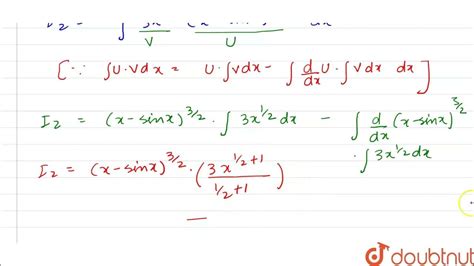 I₂ = ∫ 3x (x-sinx) dx
V U
[∵ ∫U.Vdx = U.∫Vdx - ∫ d/dx U . ∫Vdx dx]
I₂ = (x-sinx)^3/2 . ∫ 3x^1/2 dx - ∫ d/dx (x-sinx)^3/2
. ∫ 3x^1/2 dx
I₂ = (x-sinx)^3/2 . (3x^1/2+1 / 1/2+1)
doubtnut